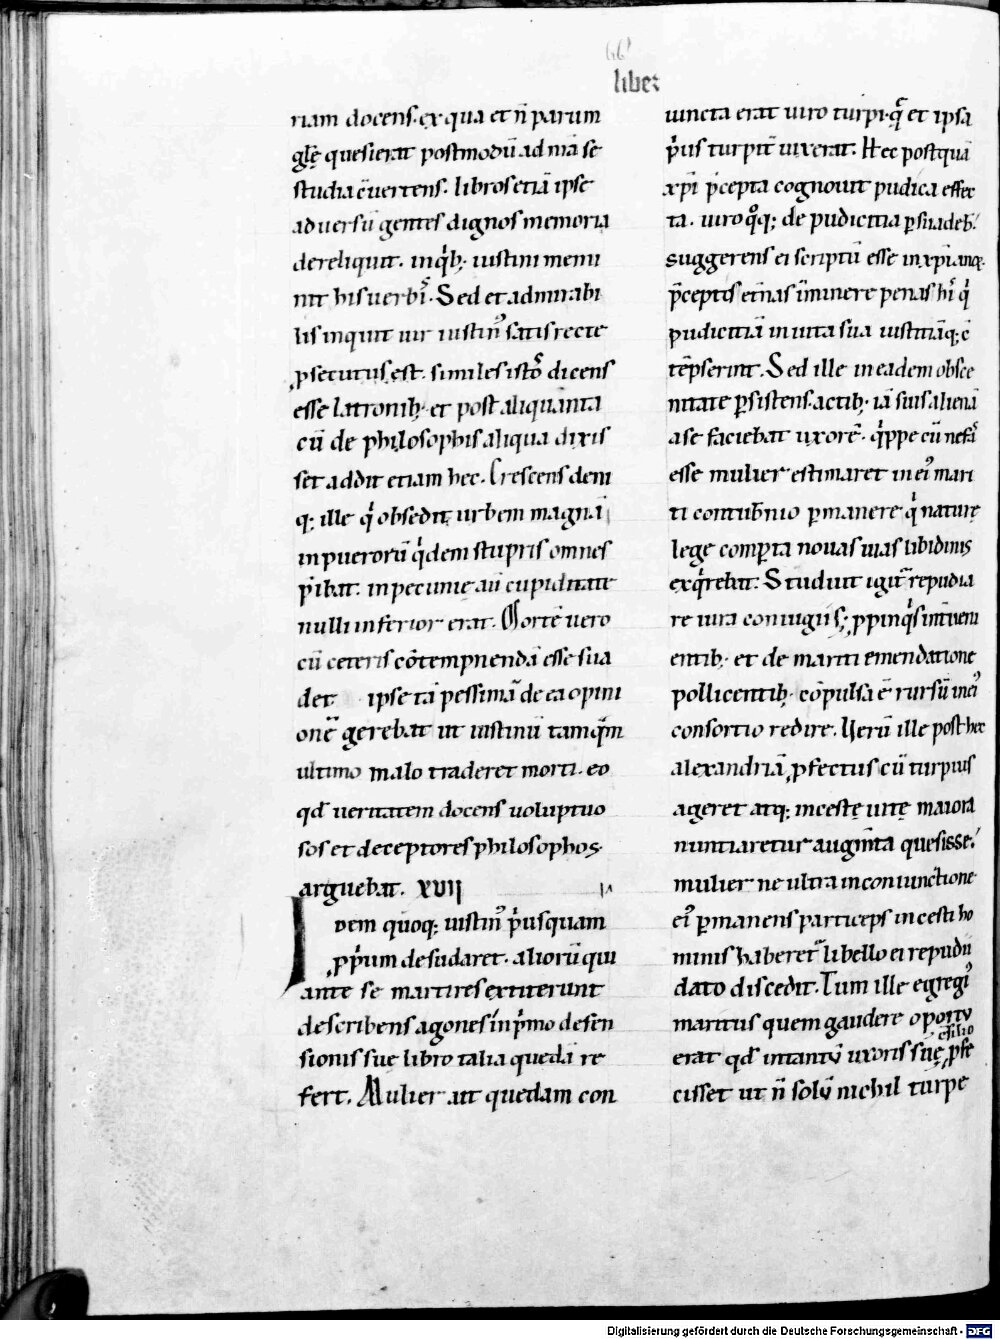 66'
liber
riam docens. ex qua et n̄ parum
gl̄ę quesierat postmodū ad nr̄a se
studia c̄uertens. libros etiā ipse
aduersū gentes dignos memoria
dereliquit. in qͥb; iustini memi
nit his uerbi᷒. Sed et admirabi
lis inquit uir iustin᷒ satis recte
ꝓsecutus est. similes isto᷒ dicens
esse latronib; et post aliquanta
cū de philosophis aliqua dixis
set addit etiam hec. Crescens deni
q; ille qͥ obsedit urbem magnā
in puerorū qͥdem stupris omnes
p̄ibat. in pecunię aū cupiditate
nulli inferior erat. Mortē uero
cū ceteris cōtempnendā esse sua
det ipse tā pessimā de ea opini
onē gerebat ut iustinū tamqͣm
ultimo malo traderet morti. eo
qd̄ ueritatem docens uoluptuo
sos et deceptores philosophos
arguebat. XVII
Idem quoq; iustin᷒ pͥusquam
ꝓpͥum desudaret. aliorū qui
ante se martires extiterunt
describens agones in pͥmo defen
sionis sue libro talia quedā re
fert. Mulier aut quedam con
iuncta erat uiro turpi. qͣ et ipsa
pͥus turpit̄ uixerat. Hec postquā
xp̄i p̄cepta cognouit pudica effec
ta. uiro qͦq; de pudicitia ꝑsuadeb̄.
suggerens ei scriptū esse in xp̄ianoꝝ
p̄ceptis et̄nas īminere penas hi᷒ qͥ
pudicitiā in uita sua iustitiāq; c̄
tēpserint. Sed ille in eadem obsce
nitate ꝑsistens. actib; iā suis alienā
a se faciebat uxorē. qͥppe cū nefa᷒
esse mulier estimaret in ei᷒ mari
ti contub̄nio ꝑmanere qͥ naturę
lege compta nouas uias libidinis
exqͥrebat. Studuit igit᷑ repudia
re iura coniugii s; ꝓpinqͥs int̄ueni
entib; et de mariti emendatione
pollicentib; cōpulsa ē rursū in ei᷒
consortio redire. Uerū ille post hec
alexandriā ꝓfectus cū turpius
ageret atq; incestę uitę maiora
nuntiaretur augm̄ta quesisse.
mulier ne ultra in coniunctione
ei᷒ ꝑmanens particeps incesti ho
minis haberet᷑ libello ei repudii
dato discedit. Tum ille egregi᷒
maritus quem gaudere oportu
erat qd̄ intantū uxoris suę c̄silio ꝓfe
cisset ut n̄ solū nichil turpe
Digitalisierung gefördert durch die Deutsche Forschungsgemeinschaft - DFG